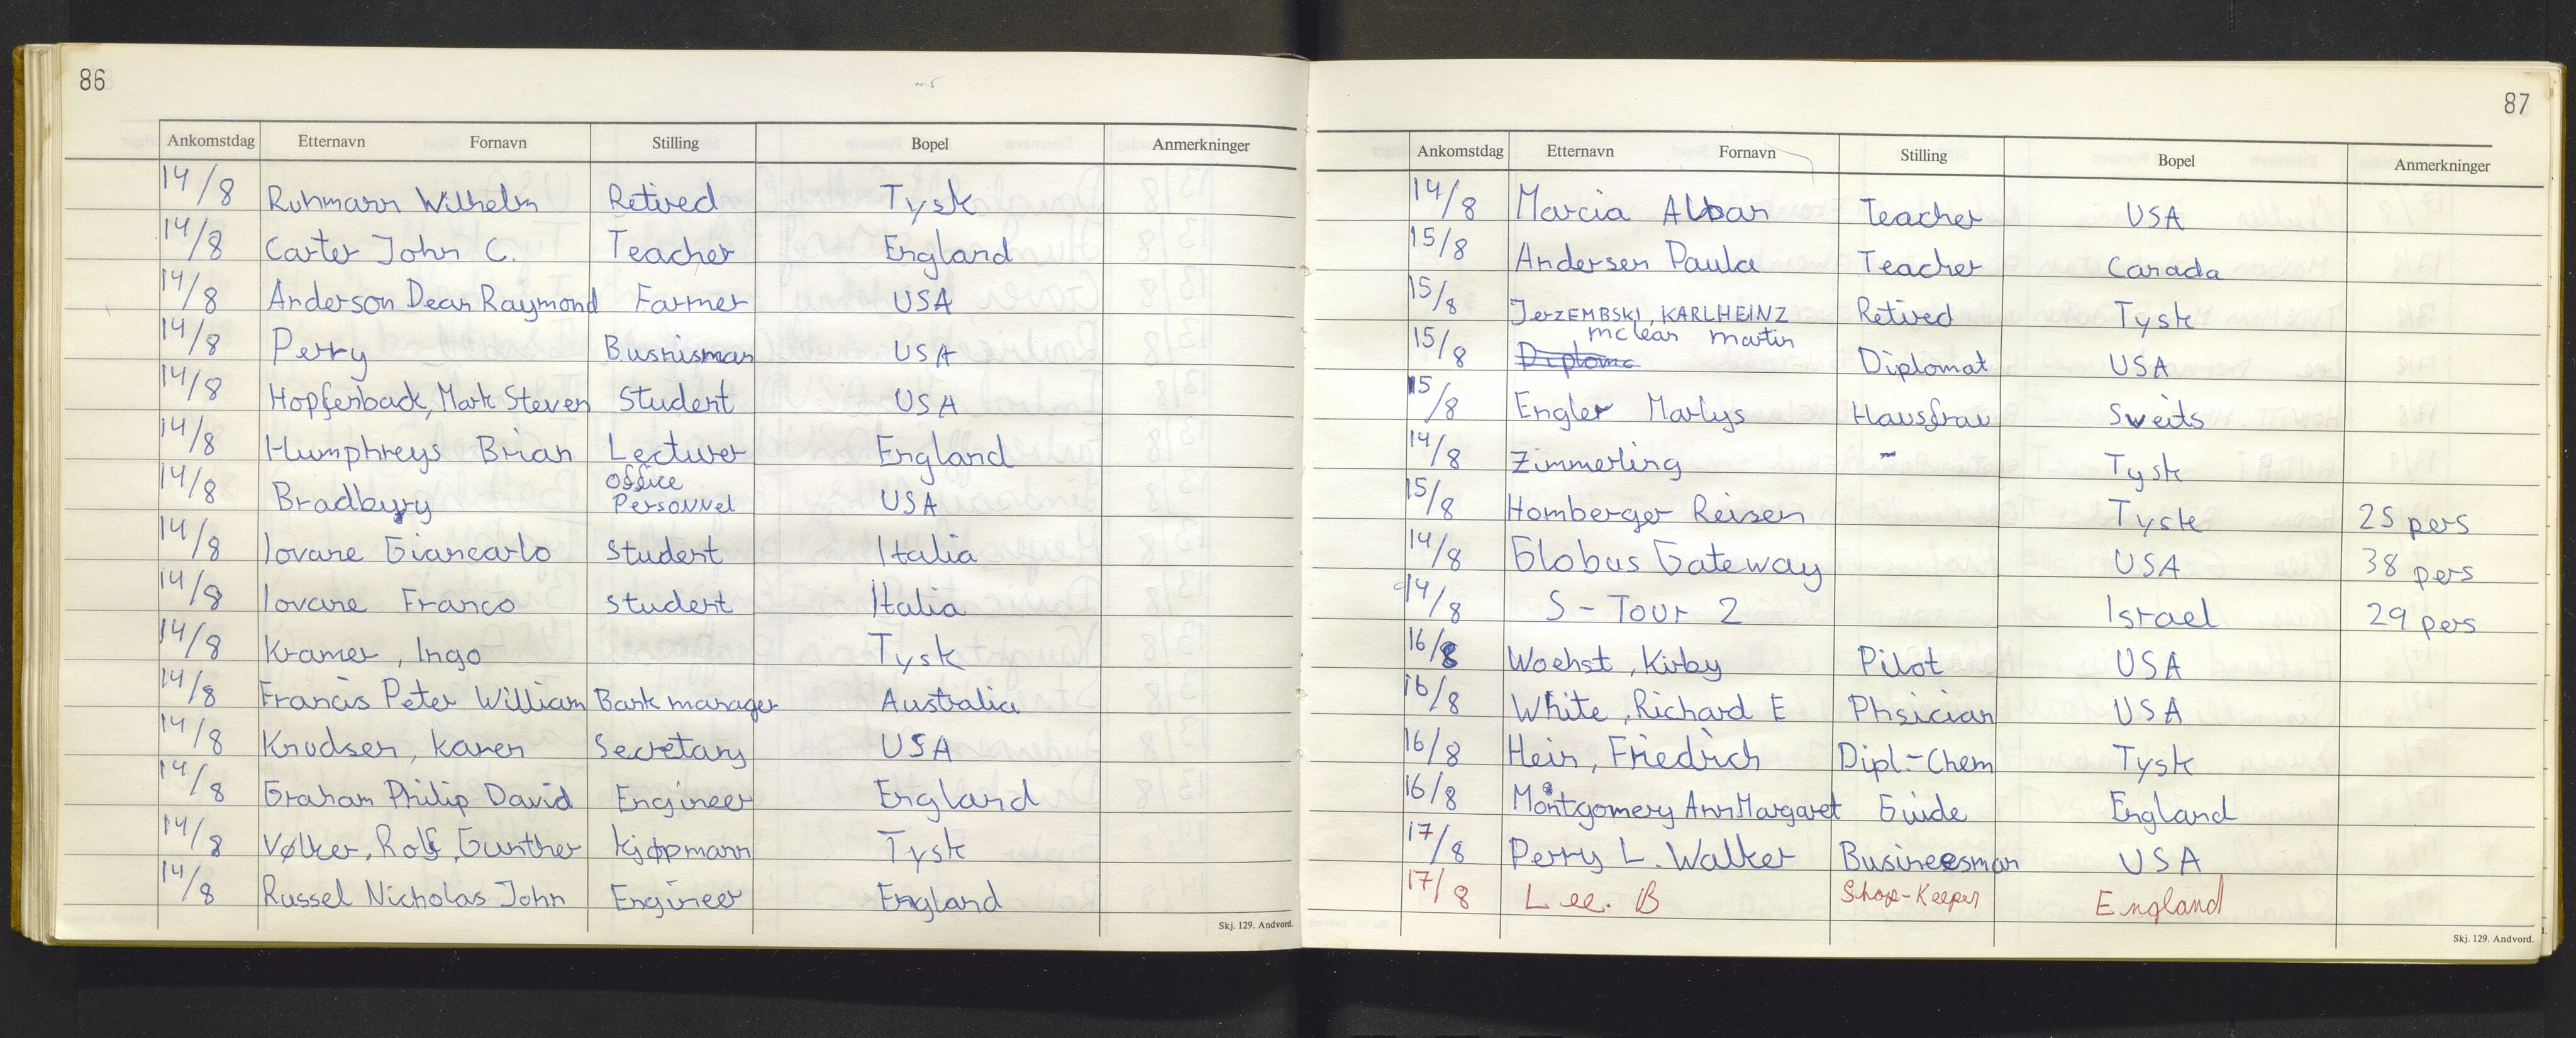 86
Ankomstdag Etternavn Fornavn Stilling Bopel Anmerkninger
14/8 Ruhmann Wilhelm Retired Tysk
14/8 Carter John C. Teacher England
14/8 Anderson Dean Raymond Farmer USA
14/8 Perry Busnisman USA
14/8 Hopfenback, Mark Steven Student USA
14/8 Humphreys Brian Lecturer England
14/8 Bradbury Office Personnel USA
14/8 Iovane Giancarlo Student Italia
14/8 Iovane Franco student Italia
14/8 Kramer, Ingo Tysk
14/8 Francis Peter William Bank manager Australia
14/8 Knudsen, Karen Secretary USA
14/8 Graham Philip David Engineer England
14/8 Vølker, Rolf, Gunther Kjøpmann Tysk
14/8 Russel Nicholas John Engineer England
Skj. 129. Andvord.
87
Ankomstdag Etternavn Fornavn Stilling Bopel Anmerkninger
14/8 Marcia Teacher USA
15/8 Andersen Paula Teacher Canada
15/8 JerzEMBSKI, KARLHEINZ Retired Tysk
15/8 Mclean Martin Diplomat USA
15/8 Engler Marlys Hausfrau Sveits
14/8 Zimmerling - Tysk
15/8 Homberger Reisen Tysk 25 pers
14/8 Globus Gateway USA 38 pers
14/8 S - Tour 2 Israel 29 pers
16/8 Woehst, Kirby Pilot USA
16/8 White, Richard E Phsician USA
16/8 Hein, Friedrich Dipl.-Chem Tysk
16/8 Montgomery Ann Margaret Guide England
17/8 Perry L. Walker Busineesman USA
17/8 Lee. B Shop-Keeper England
Skj. 129. Andvord.